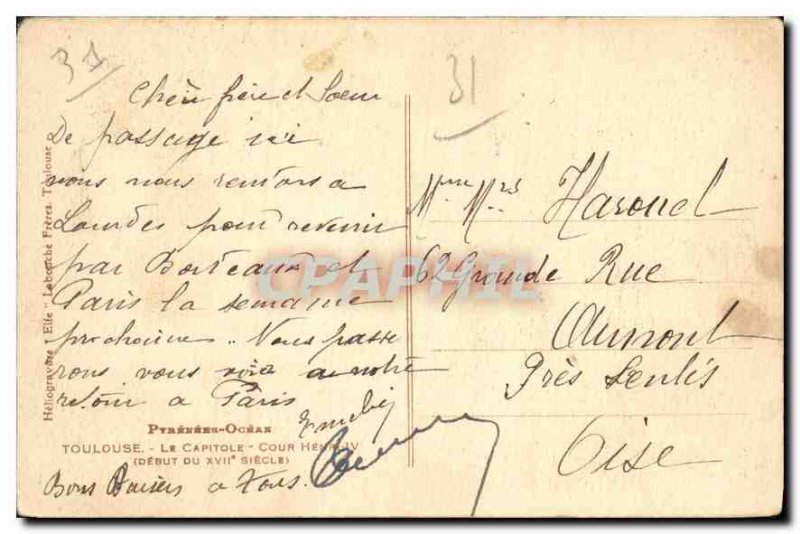 37
31
Chèr frère et Soeur
De passage ici
nous nous rentons a
Lourdes pour revenir
par Bordeaux et
Paris la semaine
prochaine.. Nous passe
rons vous voir a notre
retour a Paris
Bons Baisers a Tous.
Mme Mrs Harouel
62 Grande Rue
Aumont
Près Senlis
Oise
Héliogravure "Elfe" Labouche Frères. Toulouse
PYRÉNÉES-OCÉAN
TOULOUSE. - LE CAPITOLE - COUR HENRI IV
(DÉBUT DU XVIIe SIÈCLE)
CPAPHIL